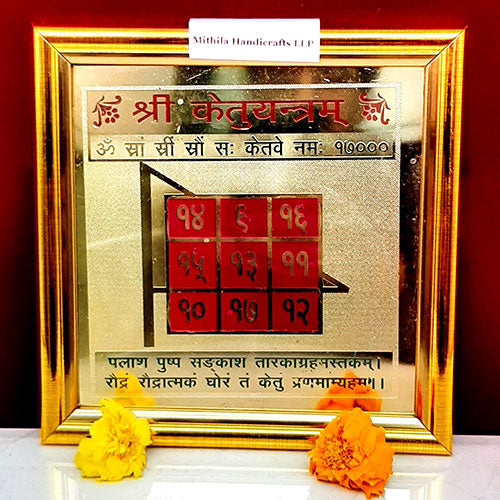 Mithila Handicrafts LLP
श्री केतुयन्त्रम्
ॐ स्रां स्रीं स्रौं सः केतवे नमः १७०००
१४ ६ १६
१५ १३ ११
१० १७ १२
पलाण पुष्प सङ्काश तारकाग्रहमस्तकम्।
रौद्रं रौद्रात्मक घोरं तं केतु प्रणमाम्यहम॥।